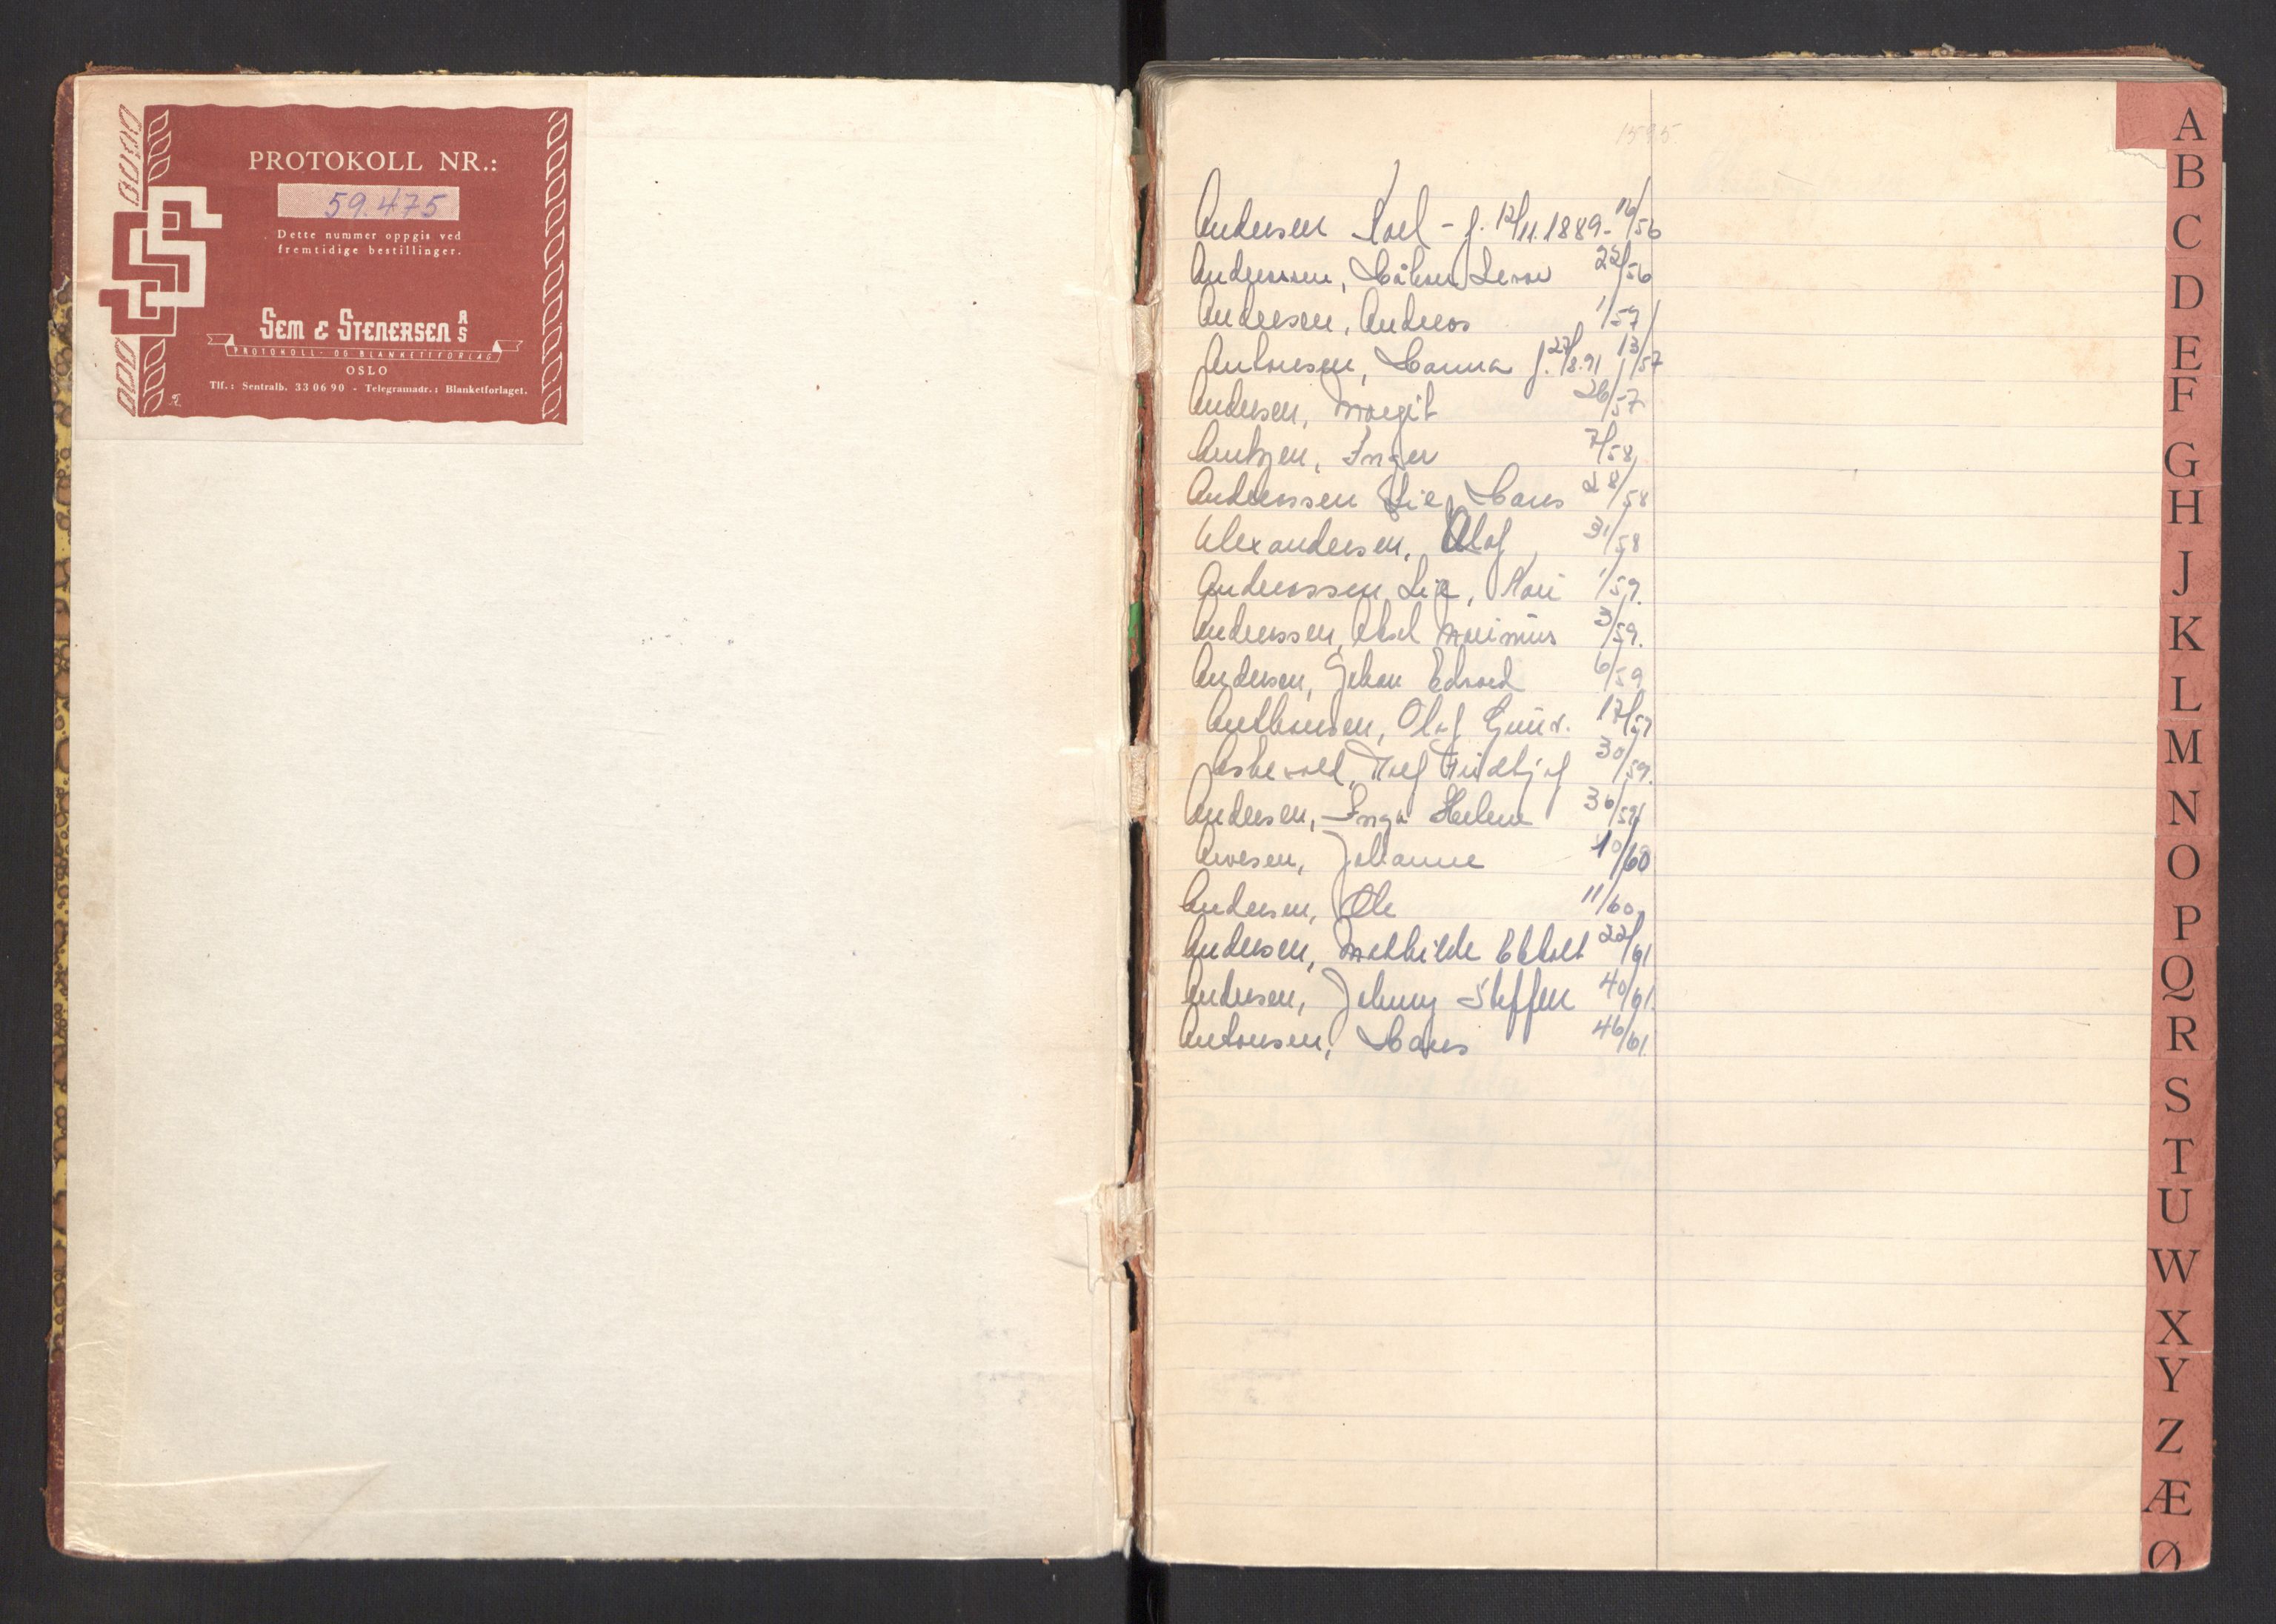 PROTOKOLL NR.:
59.475
Dette nummer oppgis ved
fremtidige bestillinger.
SEM & STENERSEN A/S
PROTOKOLL- OG BLANKETTFORLAG
OSLO
Tlf.: Sentralb. 33 06 90 - Telegramadr.: Blanketforlaget.
Andersen Karl - f. 12/11.1889. 16/56
Andreassen, Håkon 22/56
Andersen, Andreas 1/57
Antonsen, Hanna f. 27/8.91 13/57
Andersen, Margit 26/57
Arntzen, Inger 7/58
Andreassen Lie, Hans 28/58
Alexandersen, Olaf 31/58
Andreassen Lie, Kari 1/59.
Andreassen, Aksel Marinius 3/59.
Andersen, Johan Edvard 6/59
Anthonsen, Olaf 17/59
Askevold, Fridtjof 30/59.
Andersen, Inga Helene 36/59
Arvesen, Johanne 10/60
Andersen, Ole 11/60
Andersen, Mathilde 22/61
Andersen, Johnny Steffen 40/61.
Antonsen, Hans 46/61.
A
B
C
D
E
F
G
H
J
K
L
M
N
O
P
Q
R
S
T
U
W
X
Y
Z
Æ
Ø